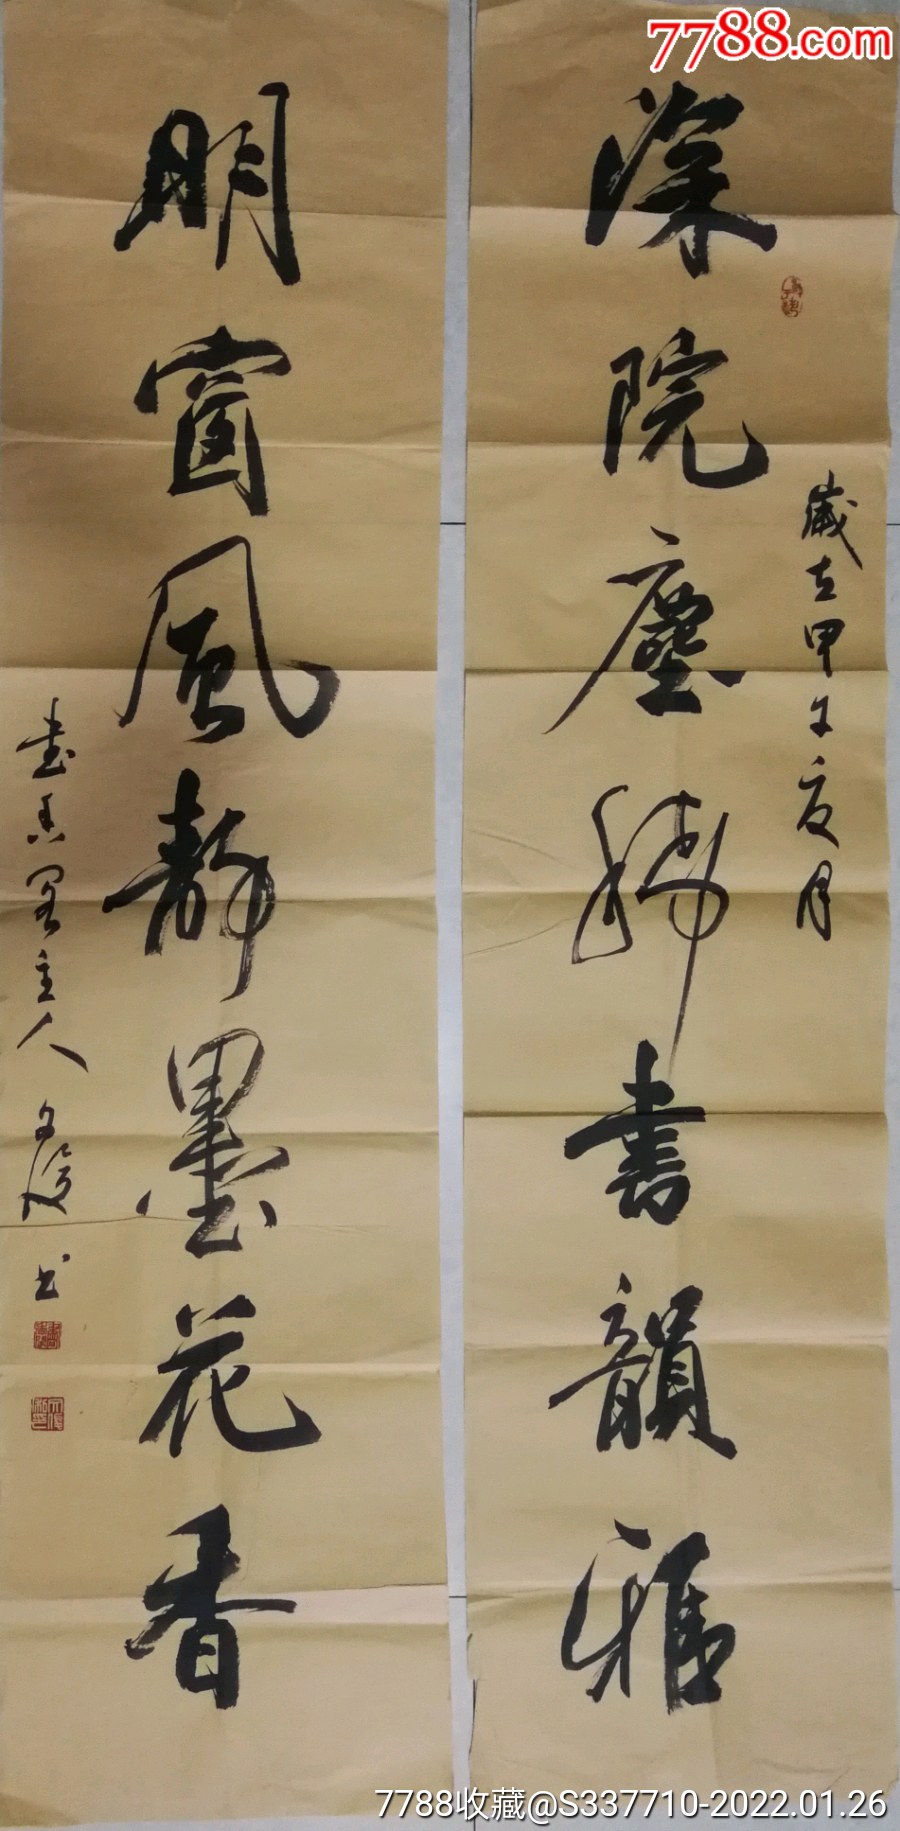 7788.com
深院塵稀書韻雅
歲在甲午夏月
明窗風靜墨花香
書香閣主人文俊书
7788收藏@S337710-2022.01.26